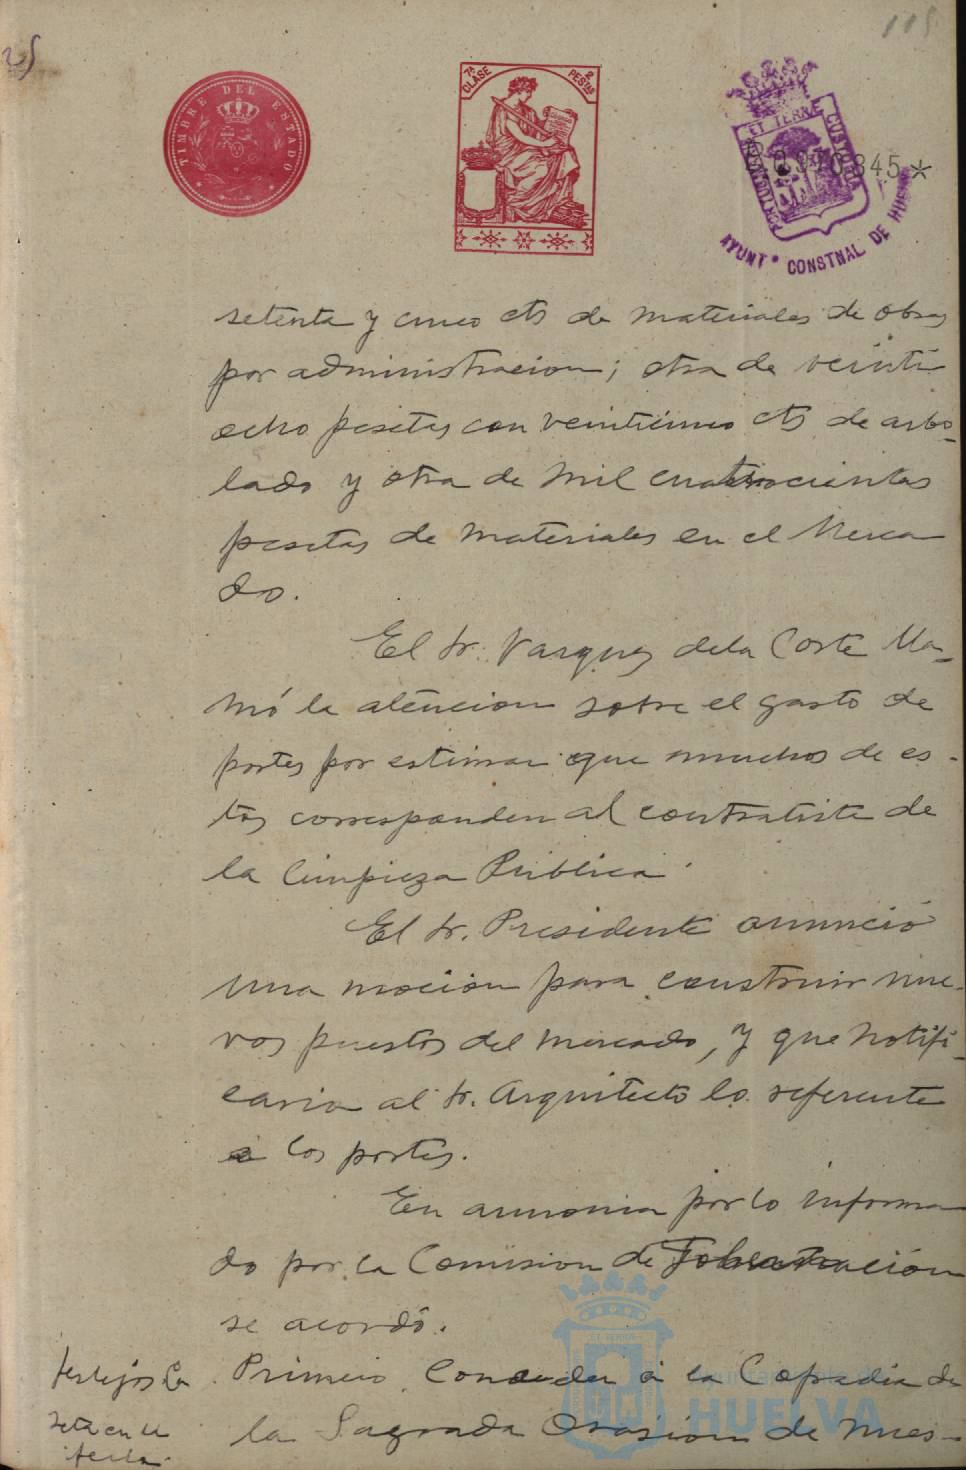 115
25
TIMBRE DEL ESTADO
7ª CLASE
2 PESTAS
PORTUS MARIS ET TERRE CUSTODIA
AYUNTº CONSTNAL DE HUELVA
0845*
setenta y cinco cts de materiales de obras
por administracion; otra de veinti
ocho pesetas con veinticinco cts de arbo-
lado y otra de mil cuatrocientas
pesetas de materiales en el Merca
do.
El Sr. Vazquez dela Corte lla-
mó la atencion sobre el gasto de
portes por estimar que muchos de es-
tos corresponden al contratista de
la limpieza Publica.
El Sr. Presidente anunció
una mocion para construir nue-
vos puestos del mercado, y que notifi-
caria al Sr. Arquitecto lo referente
a los portes.
En armonia por lo informa
do por la Comision de
se acordó.
Primero Conceder á la Cofradia de
la Sagrada Orasion de Nues-
festejos
Ayuntamiento de
HUELVA